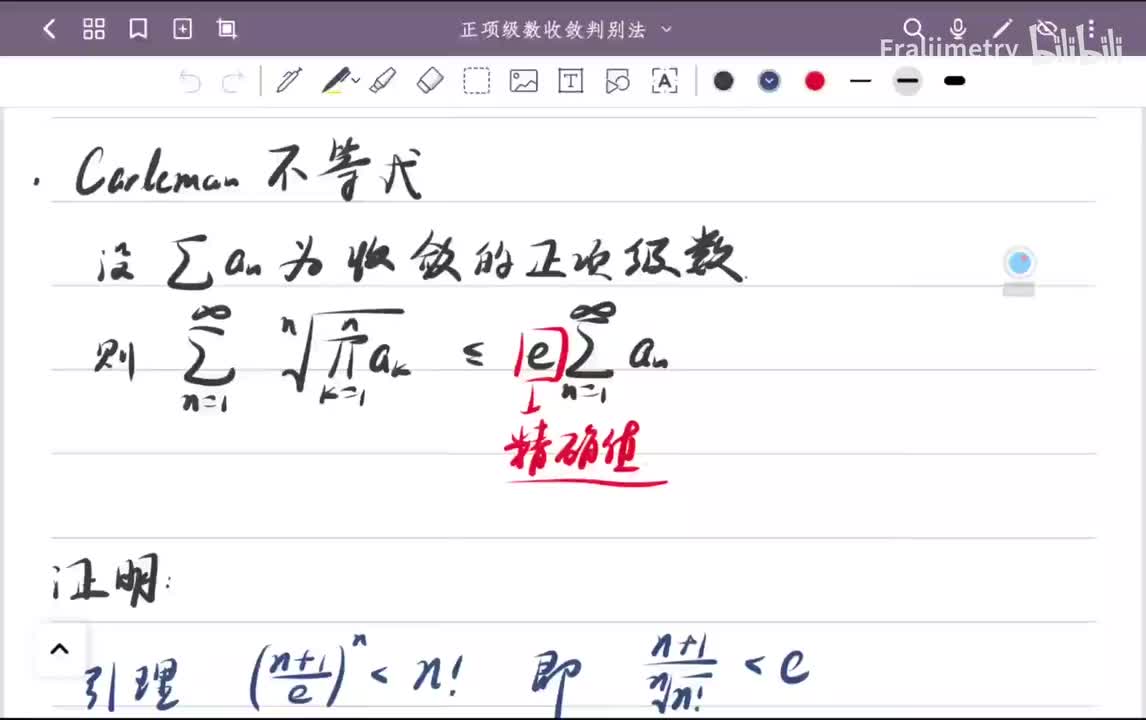 正项级数收敛判别法
Fraljimetry bilibili
· Carleman 不等式
设 ∑ aₙ 为收敛的正项级数.
则 ∑_{n=1}^{∞} ⁿ√(∏_{k=1}^{n} aₖ) ≤ e ∑_{n=1}^{∞} aₙ
精确值
证明:
引理 ((n+1)/e)ⁿ < n! 即 (n+1)/ⁿ√(n!) < e